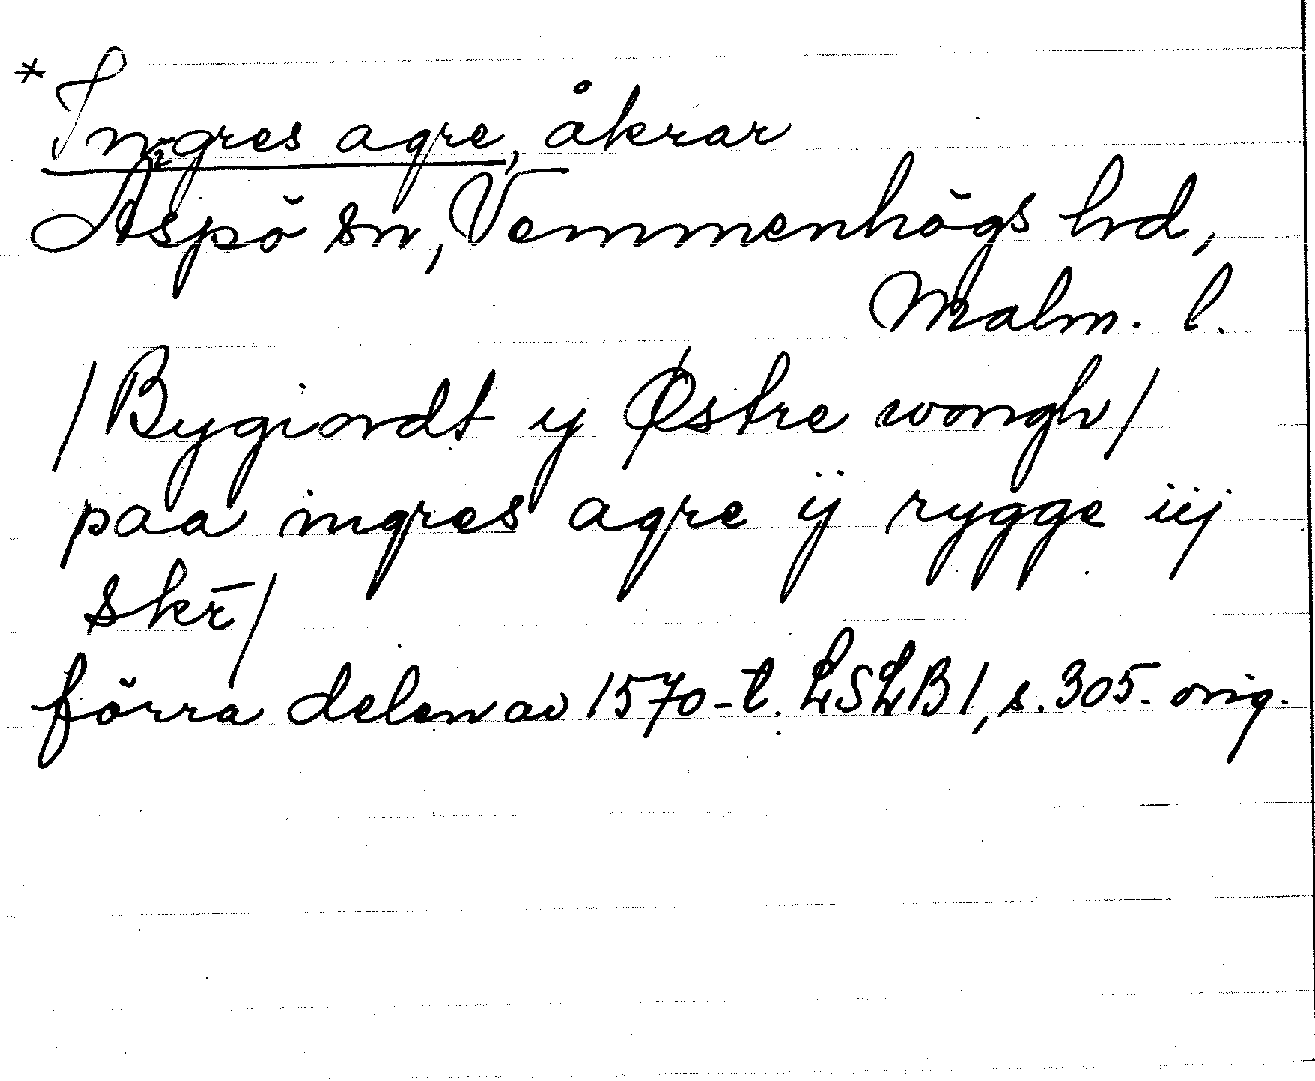 * Ingres agre, åkrar
Äspö sn, Vemmenhögs hd,
Malm. l.
/Bygiordt y Østre wongh/
paa ingres agre ij rygge iij
skr̄/
förra delen av 1570-t. LSLB1, s. 305. orig.